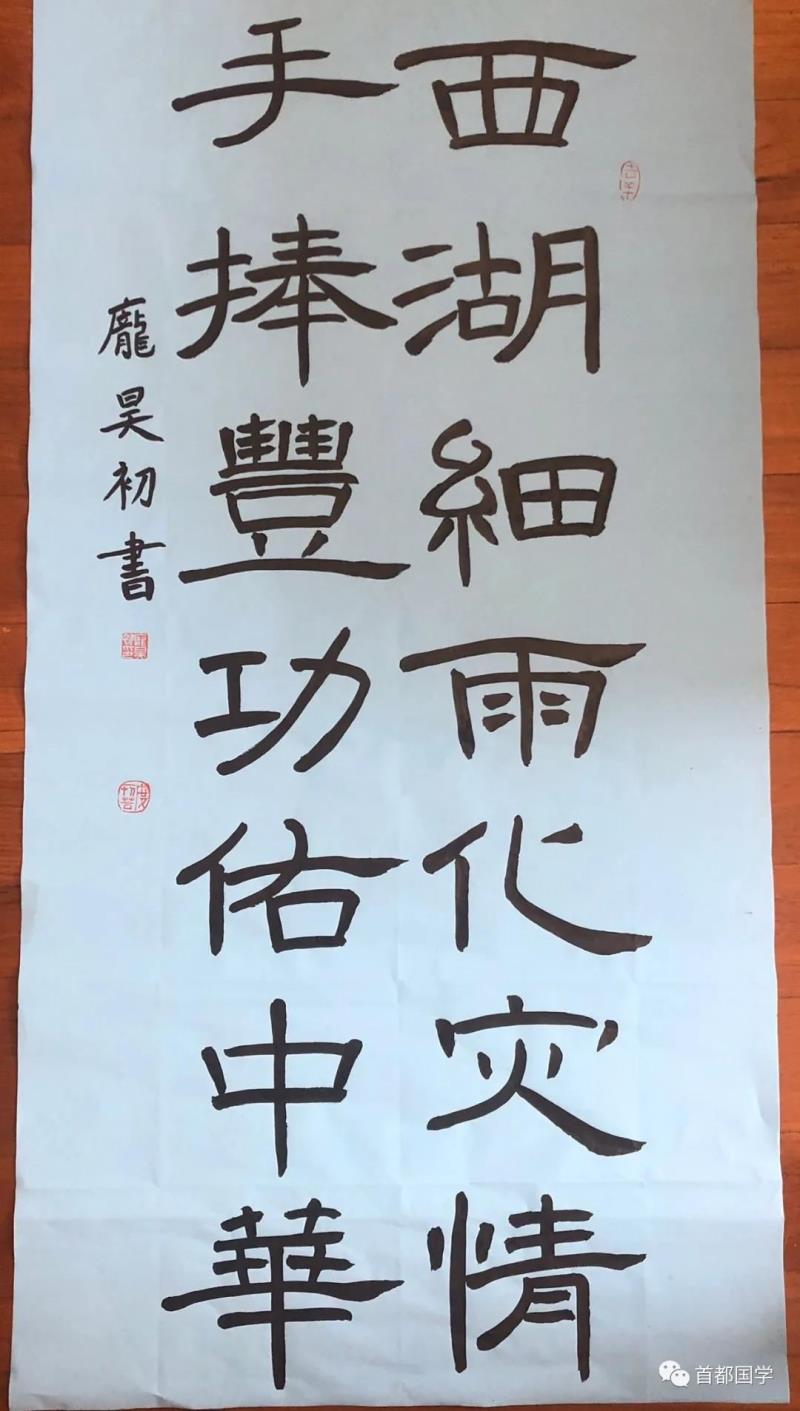 西湖細雨化灾情
手捧豐功佑中華
龐昊初書
首都国学